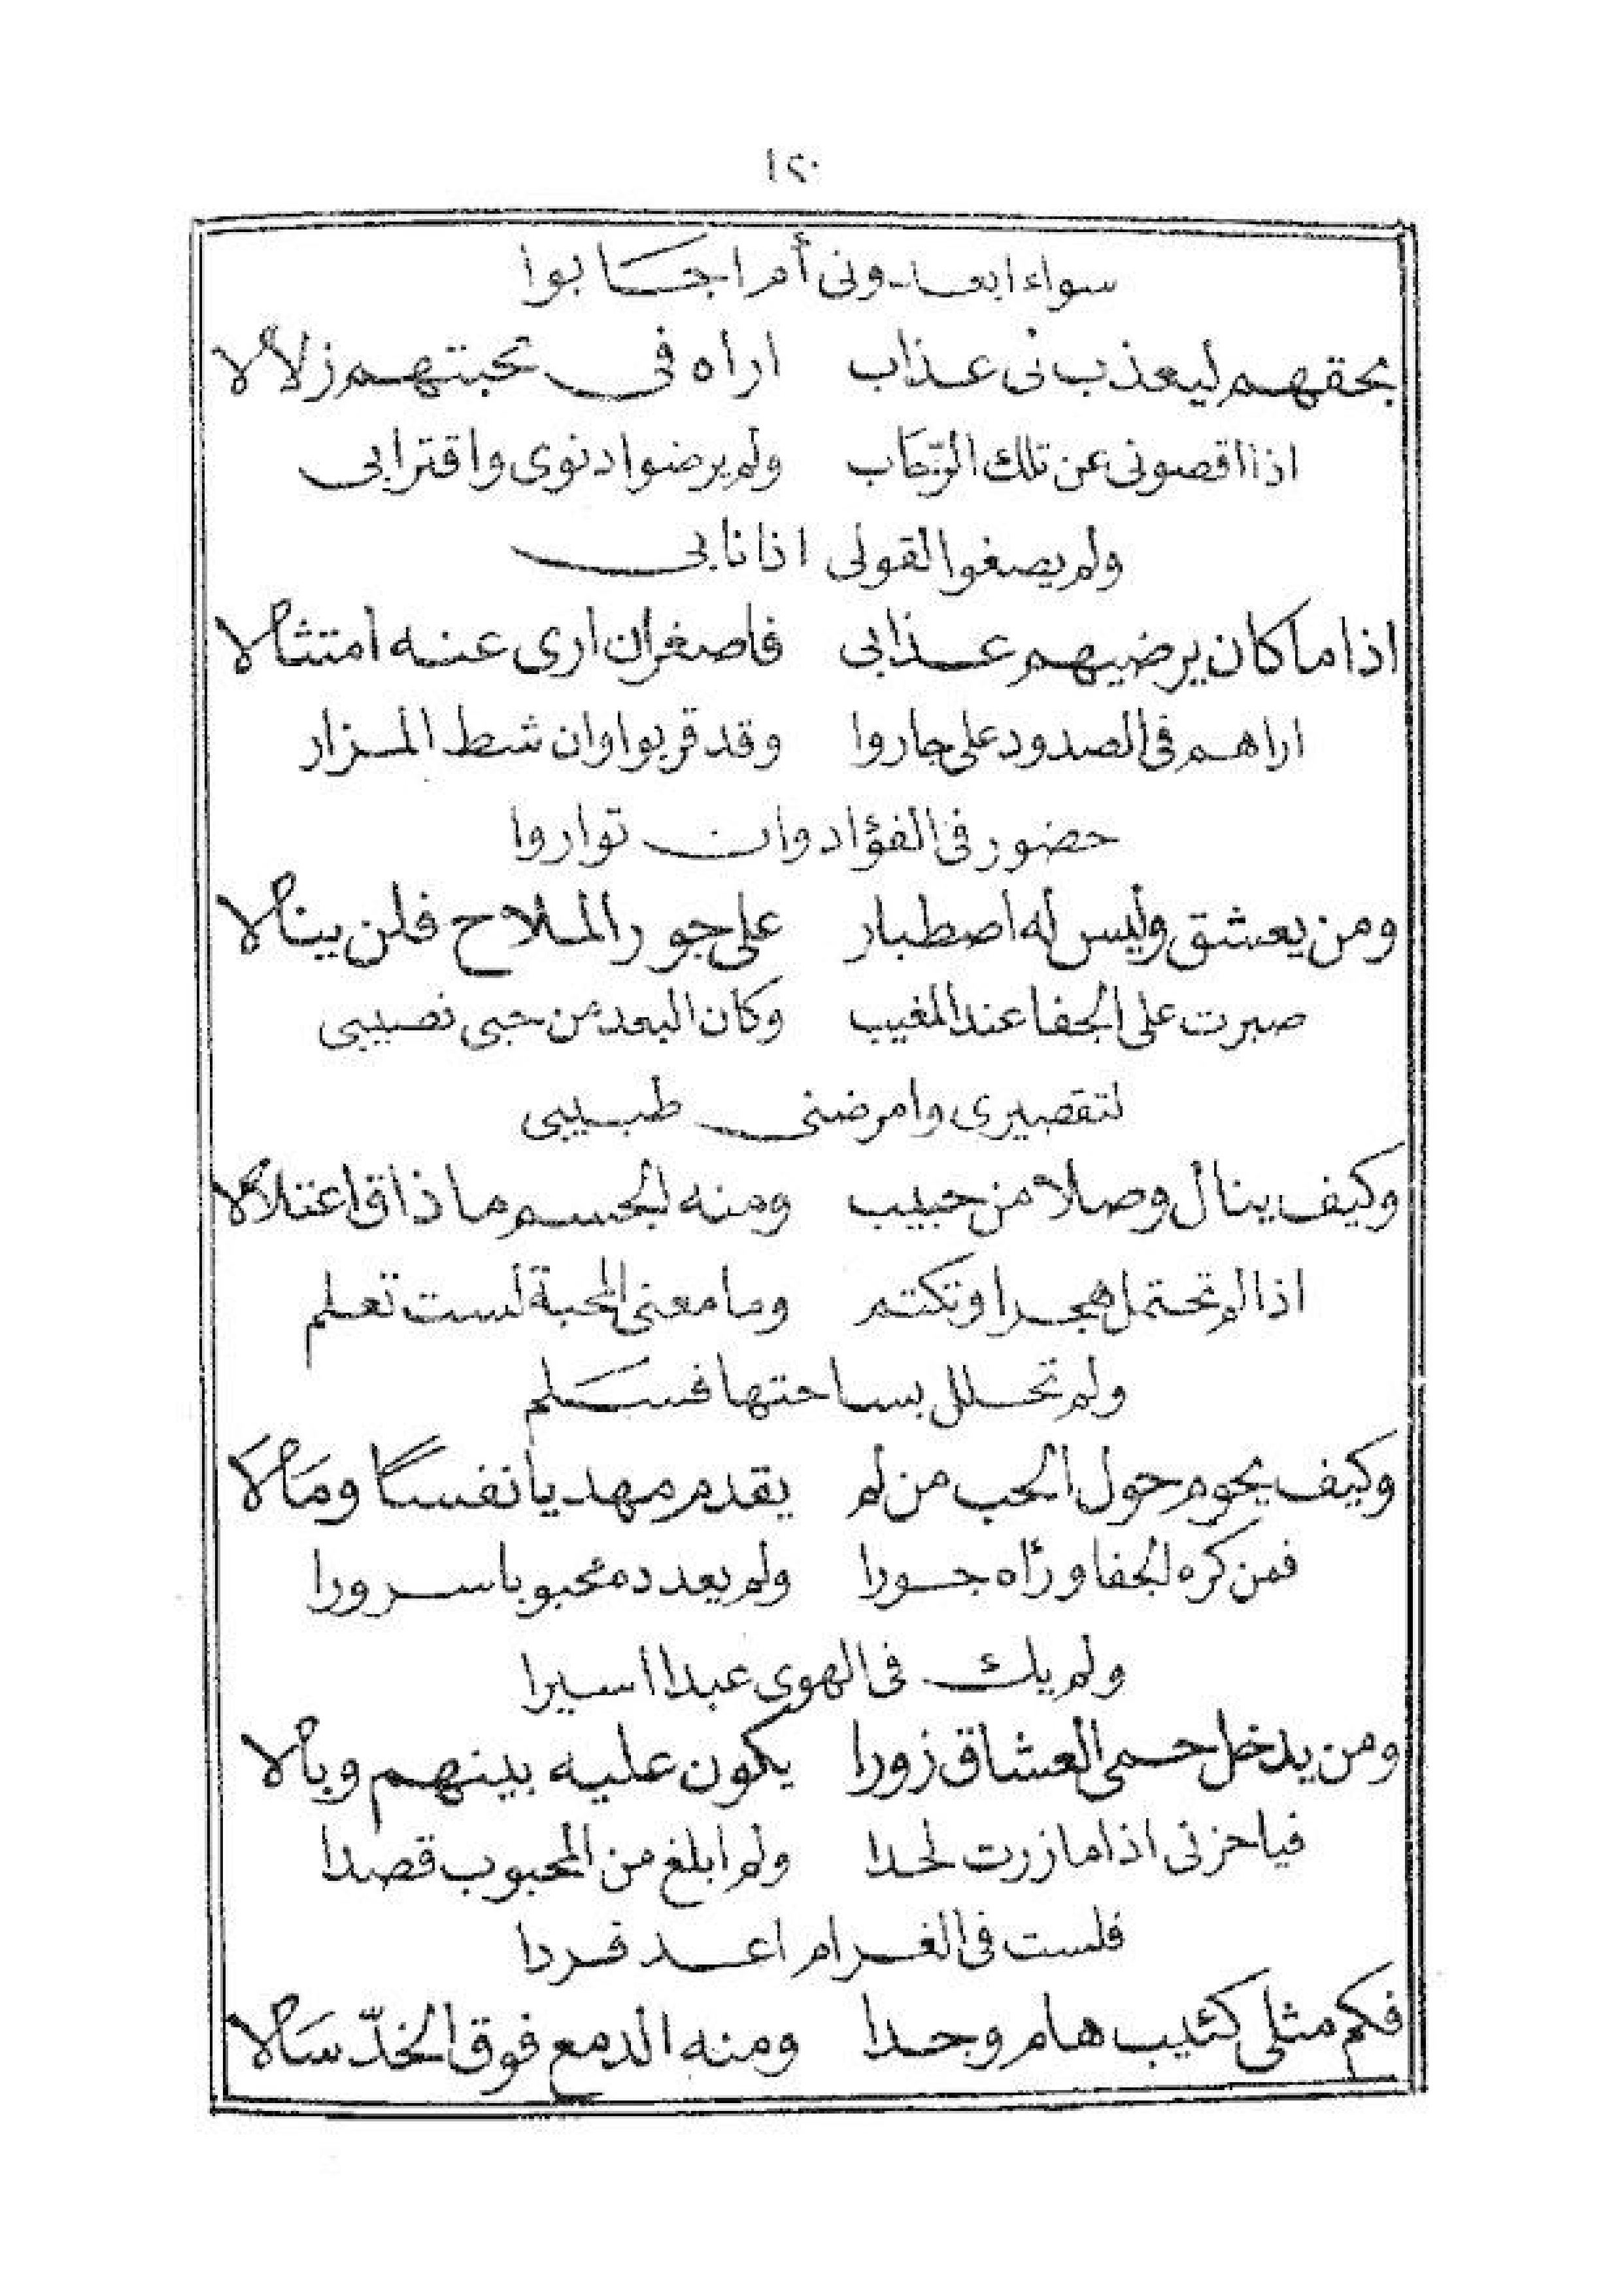 ١٢٠
سواء ابعدونى أم اجابوا
بحقهم ليعذب نى عذاب اراه فى محبتهم زلالا
اذا اقصونى عن تلك الرّحاب ولم يرضوا دنوى واقترابى
ولم يصغوا لقولى اذا نابى
اذا ما كان يرضيهم عذابى فاصغر ان ارى عنه امتثالا
اراهم فى الصدود على جاروا وقد قربوا وان شط المزار
حضور فى الفؤاد وان تواروا
ومن يعشق وليس له اصطبار على جور الملاح فلن ينالا
صبرت على الجفا عند المغيب وكان البعد من حبى نصيبى
لتقصيرى وامرضنى طبيبى
وكيف ينال وصلا من حبيب ومنه الجسم ما ذاق اعتلالا
اذا لم تحتمل هجرا وتكتم وما معنى المحبة لست تعلم
ولم تحلل بساحتها فسلم
وكيف يحوم حول الحب من لم يقدم مهديا نفسًا ومالا
فمن كره الجفا ورأه جورا ولم يعدده محبوبا سرورا
ولم يك فى الهوى عبدا اسيرا
ومن يدخل حمى العشاق زورا يكون عليه بينهم وبالا
فيا حزنى اذا ما زرت لحدا ولم ابلغ من المحبوب قصدا
فلست فى الغرام اعد فردا
فكم مثلى كئيب هام وجدا ومنه الدمع فوق الخدّ سالا